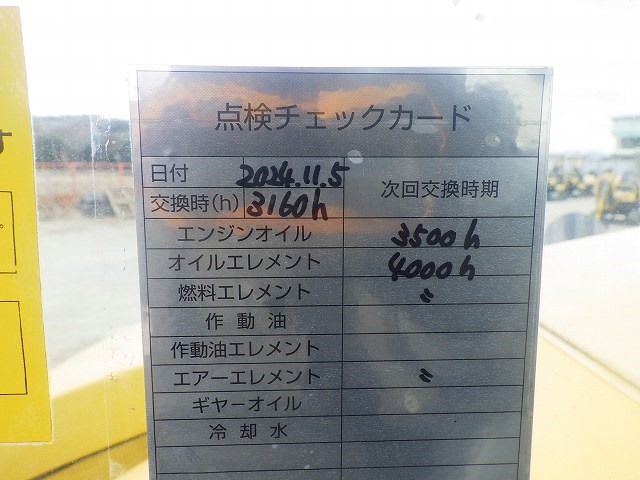 点検チェックカード
日付 2024.11.5 次回交換時期
交換時(h) 3160h
エンジンオイル 3500h
オイルエレメント 4000h
燃料エレメント 〃
作動油
作動油エレメント
エアーエレメント 〃
ギヤーオイル
冷却水
す